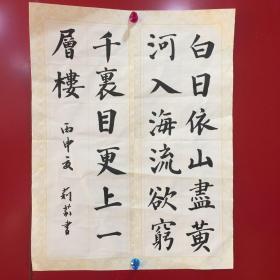 白日依山盡黄
河入海流欲窮
千裏目更上一
層樓
丙申夏
莉茹書